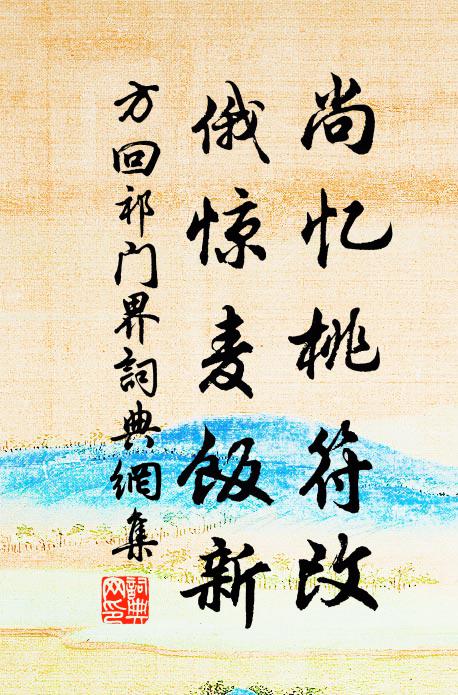 尚忆桃符改
俄惊麦饭新
方回祁门界詞典網集